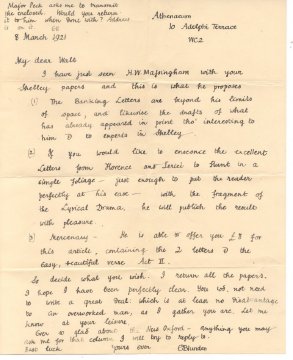 Major Peck asks me to transmit
the enclosed. Would you return
it to him when done with? Address
is on it. EB
8 March 1921
Athenaeum
10 Adelphi Terrace
WC2
My dear Wells
I have just seen H.W. Massingham with your
Shelley papers and this is what he proposes
(1) The Banking Letters are beyond his limits
of space, and likewise the drafts of what
has already appeared in print tho' interesting to
him & to experts in Shelley.
(2) If you would like to ensconce the excellent
Letters from Florence and Lerici to Baint in a
single foliage — just enough to put the reader
perfectly at his ease — with the fragment of
the Lyrical Drama, he will publish the result
with pleasure.
(3) Mercenary — He is able to offer you £8 for
this article containing the 2 letters & the
easy, beautiful verse Act II.
So decide what you wish. I return all the papers.
I hope I have been perfectly clear. You wd. not need
to write a great deal: which is at least no disadvantage
to an overworked man, as I gather you are. Let me
know at your leisure.
Ever so glad about the New Oxford — anything you may
ask me for that column I will try to reply to.
Best luck Yours ever EBlunden